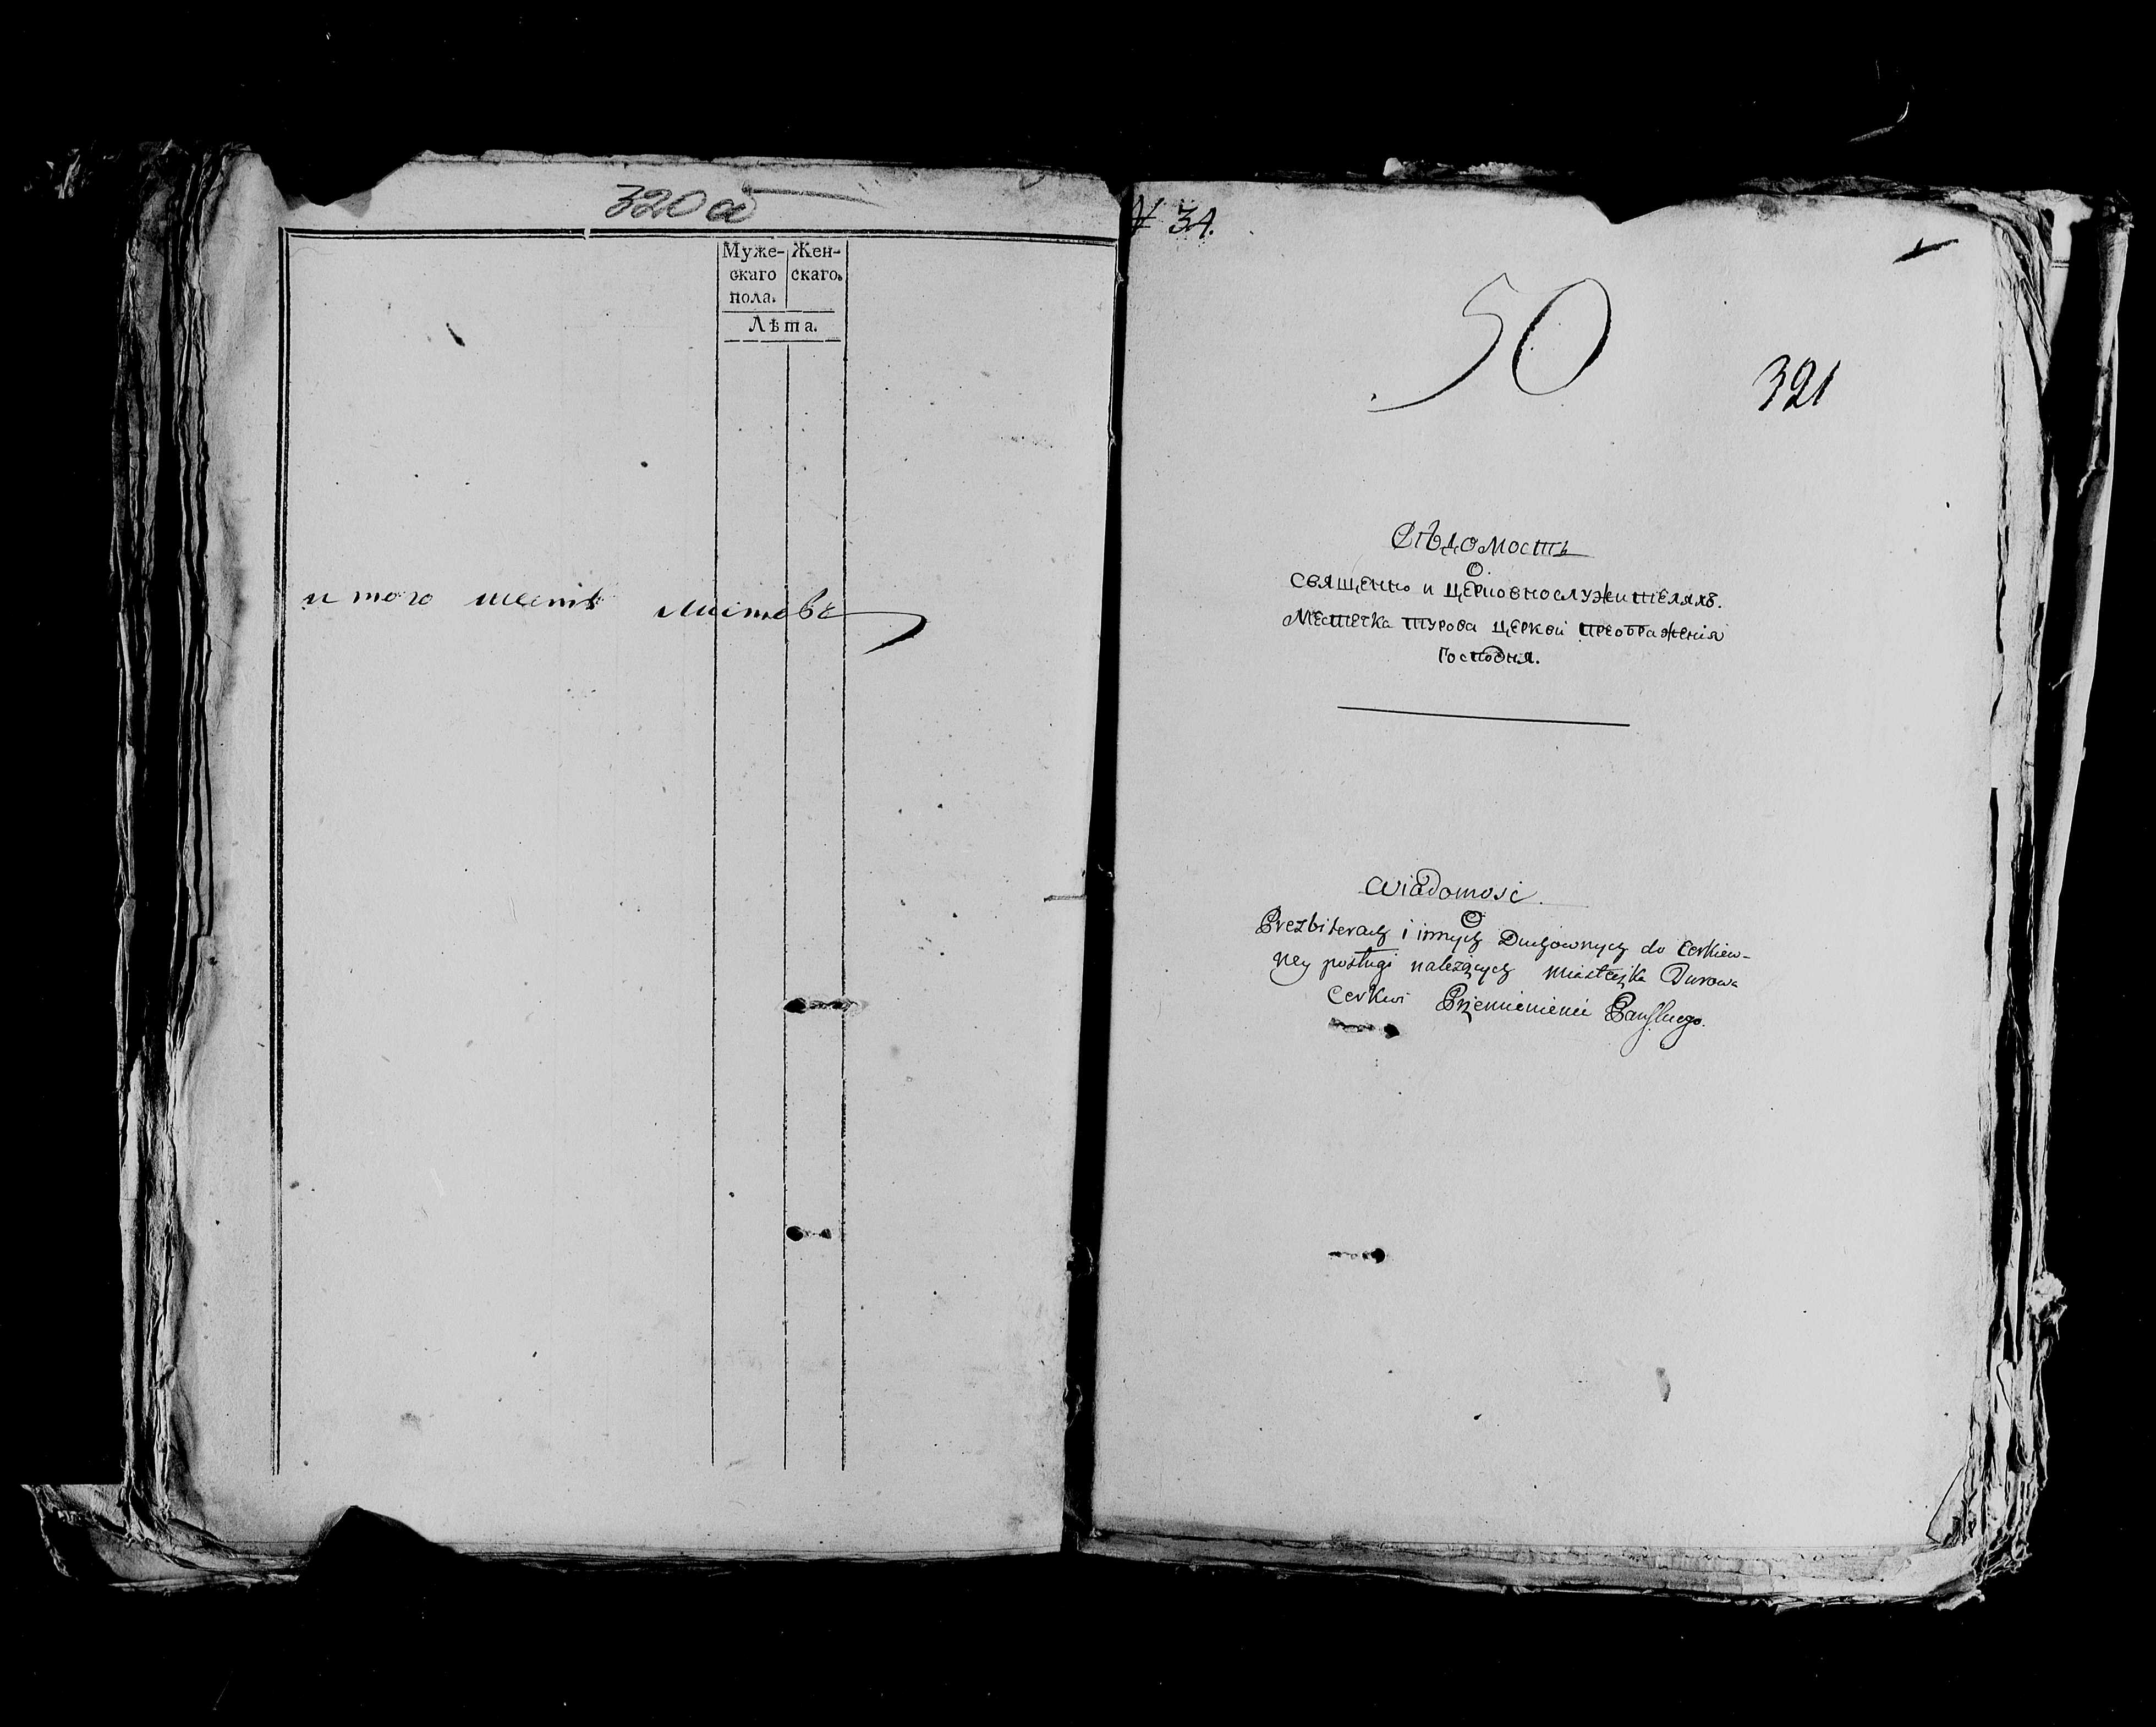 320а
Муже- Жен-
скаго скаго.
пола.
Лѣта.
итого шесть листовъ
№ 34.
50
321
Вѣдомость
О.
священно и церковнослужителяхъ.
Местечка турова церкви преображенія
Господня.
Wiadomosc.
O
Prezbiterach i innych Duchownych do Cerkiew-
ney posługi należących miasteczka Turowa
Cerkwi Przemienienia Pańskiego.